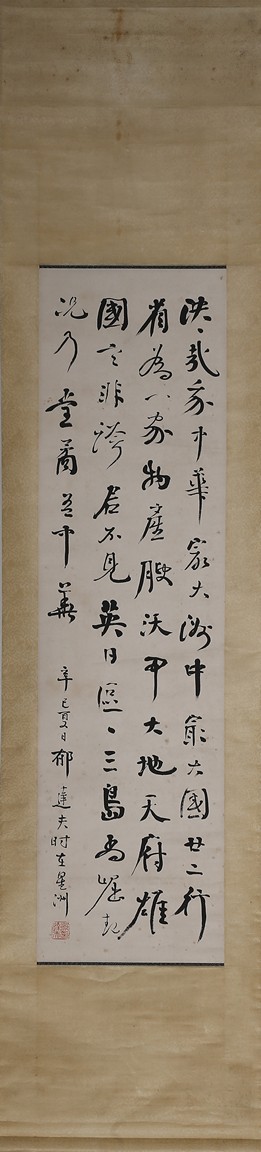 泱、哉我中華最大洲中最大國廿二行
省為一家物產腴沃甲大地天府雄
國言非誇君不見英日區、三島尚崛起
況乃堂矞吾中華
辛巳夏日郁達夫時在星洲